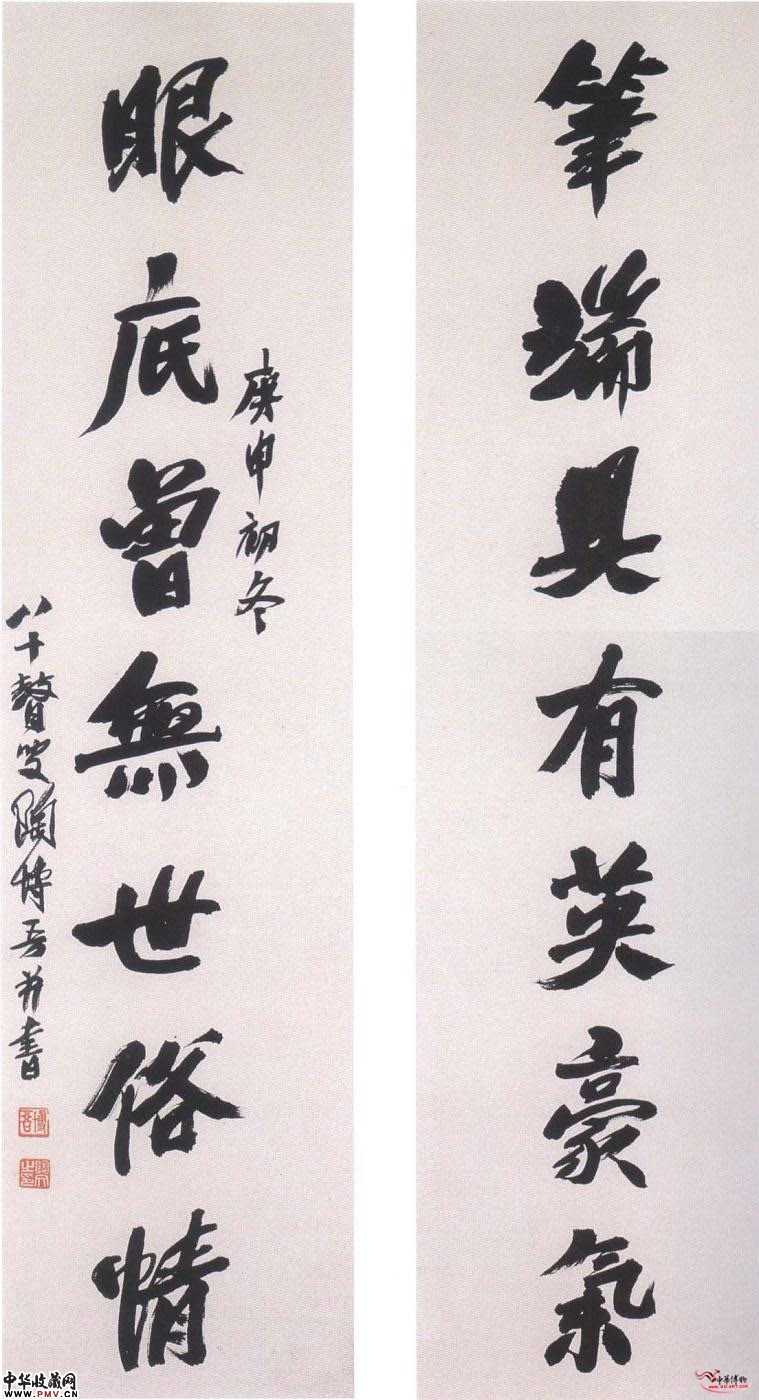 筆端具有英豪氣
眼底曾無世俗情
庚申初冬
八十贅叟陶博吾并書
博吾
中華博物
中华收藏网
www.PMV.CN